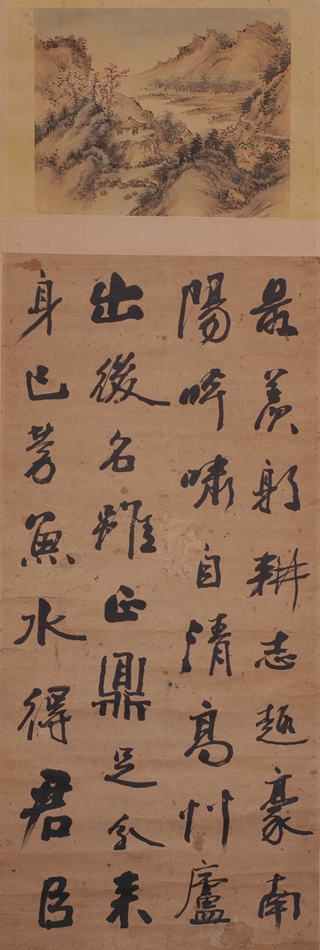 最羨躬耕志趣豪南
陽吟嘯自清高艸廬
出後名雖正鼎足分来
身已勞魚水得君臣